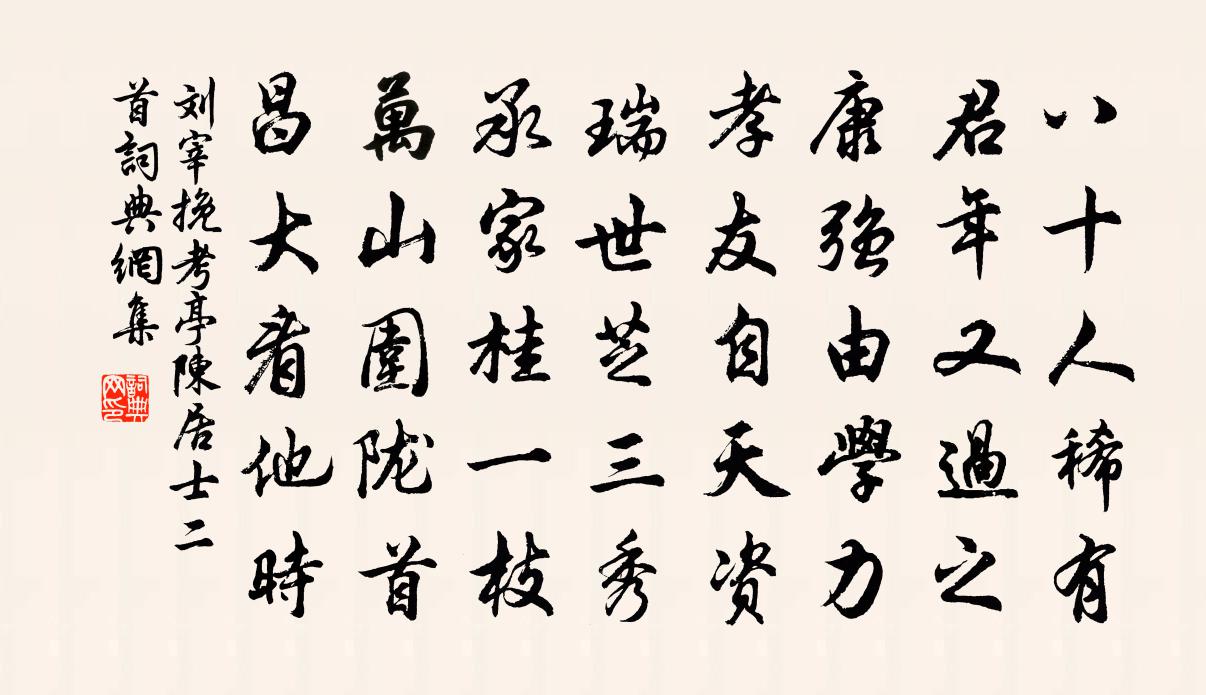 八十人稀有
君年又過之
康強由學力
孝友自天资
瑞世芝三秀
承家桂一枝
萬山圍陇首
昌大看他時
刘宰挽考亭陳居士二
首詞典網集
詞典
网印